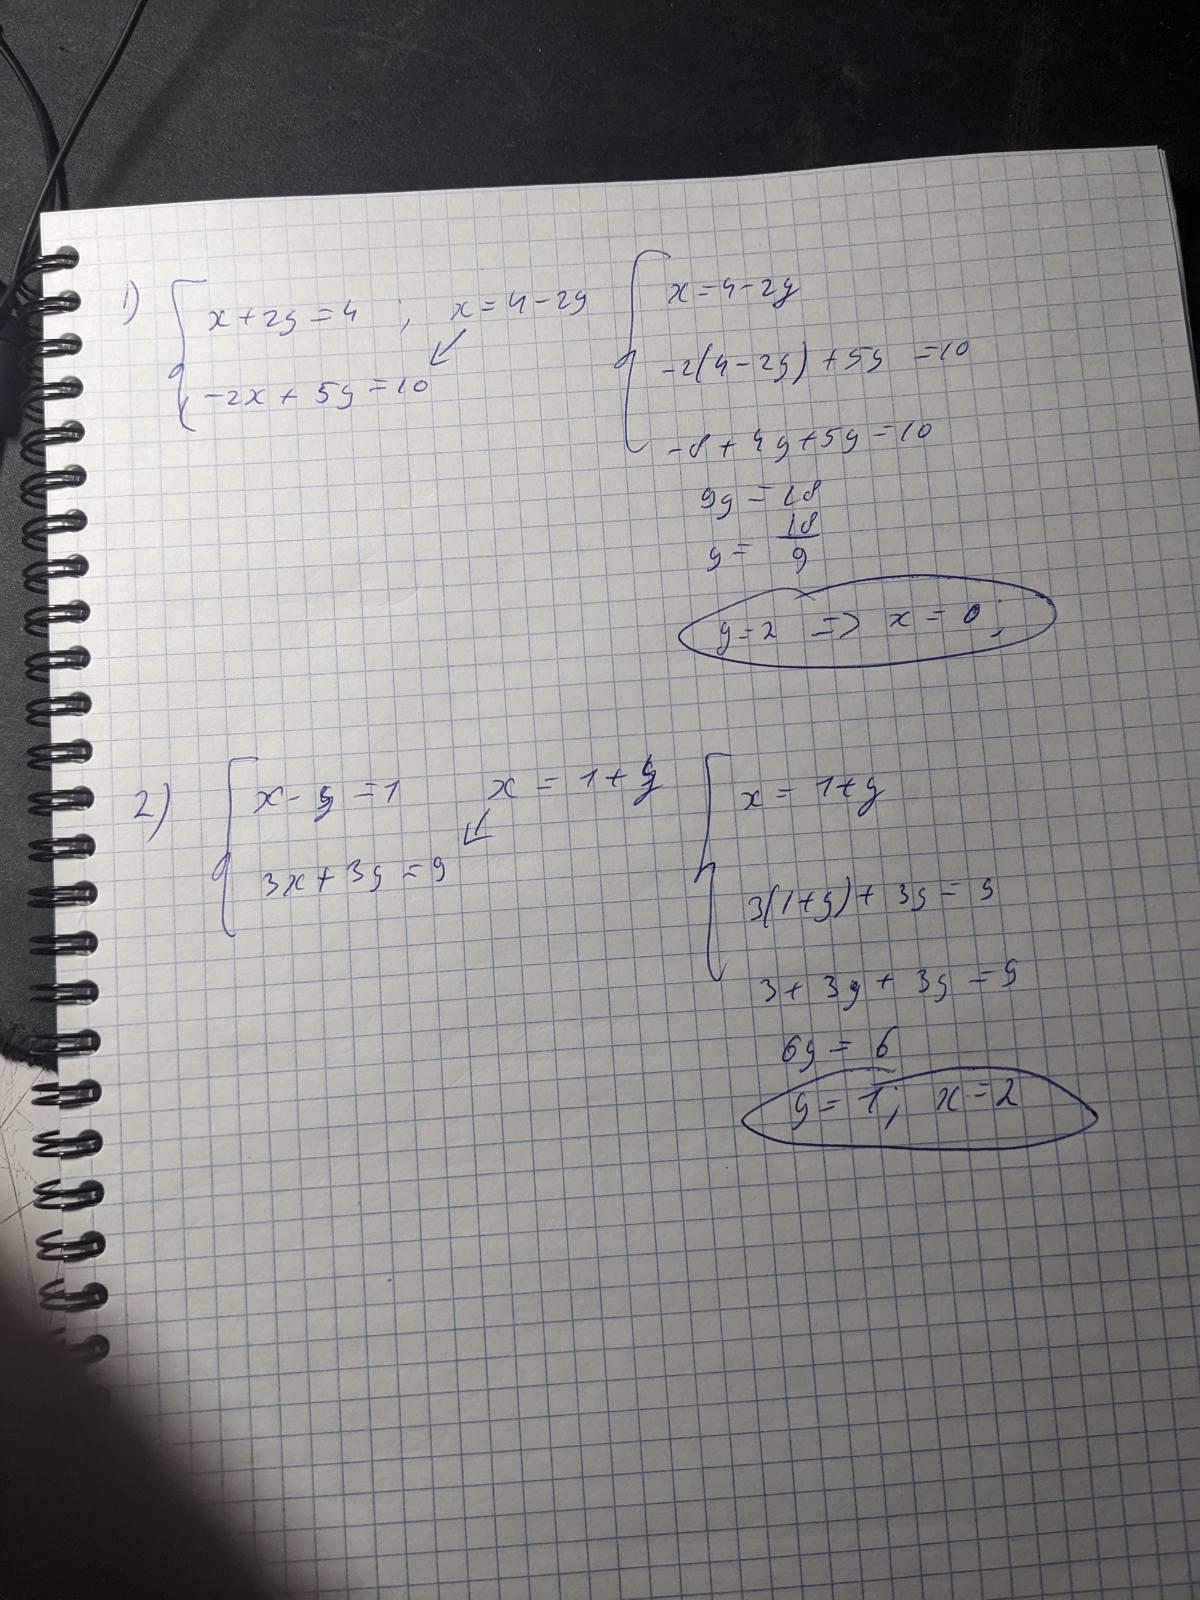 1) x+2y=4 ; x=4-2y
-2x+5y=10
x=4-2y
-2(4-2y)+5y =10
-8+4y+5y=10
9y=18
y=18/9
y=2 => x=0;
2) x-y=1 x=1+y
3x+3y=9
x=1+y
3(1+y)+3y=9
3+3y+3y=9
6y=6
y=1; x=2